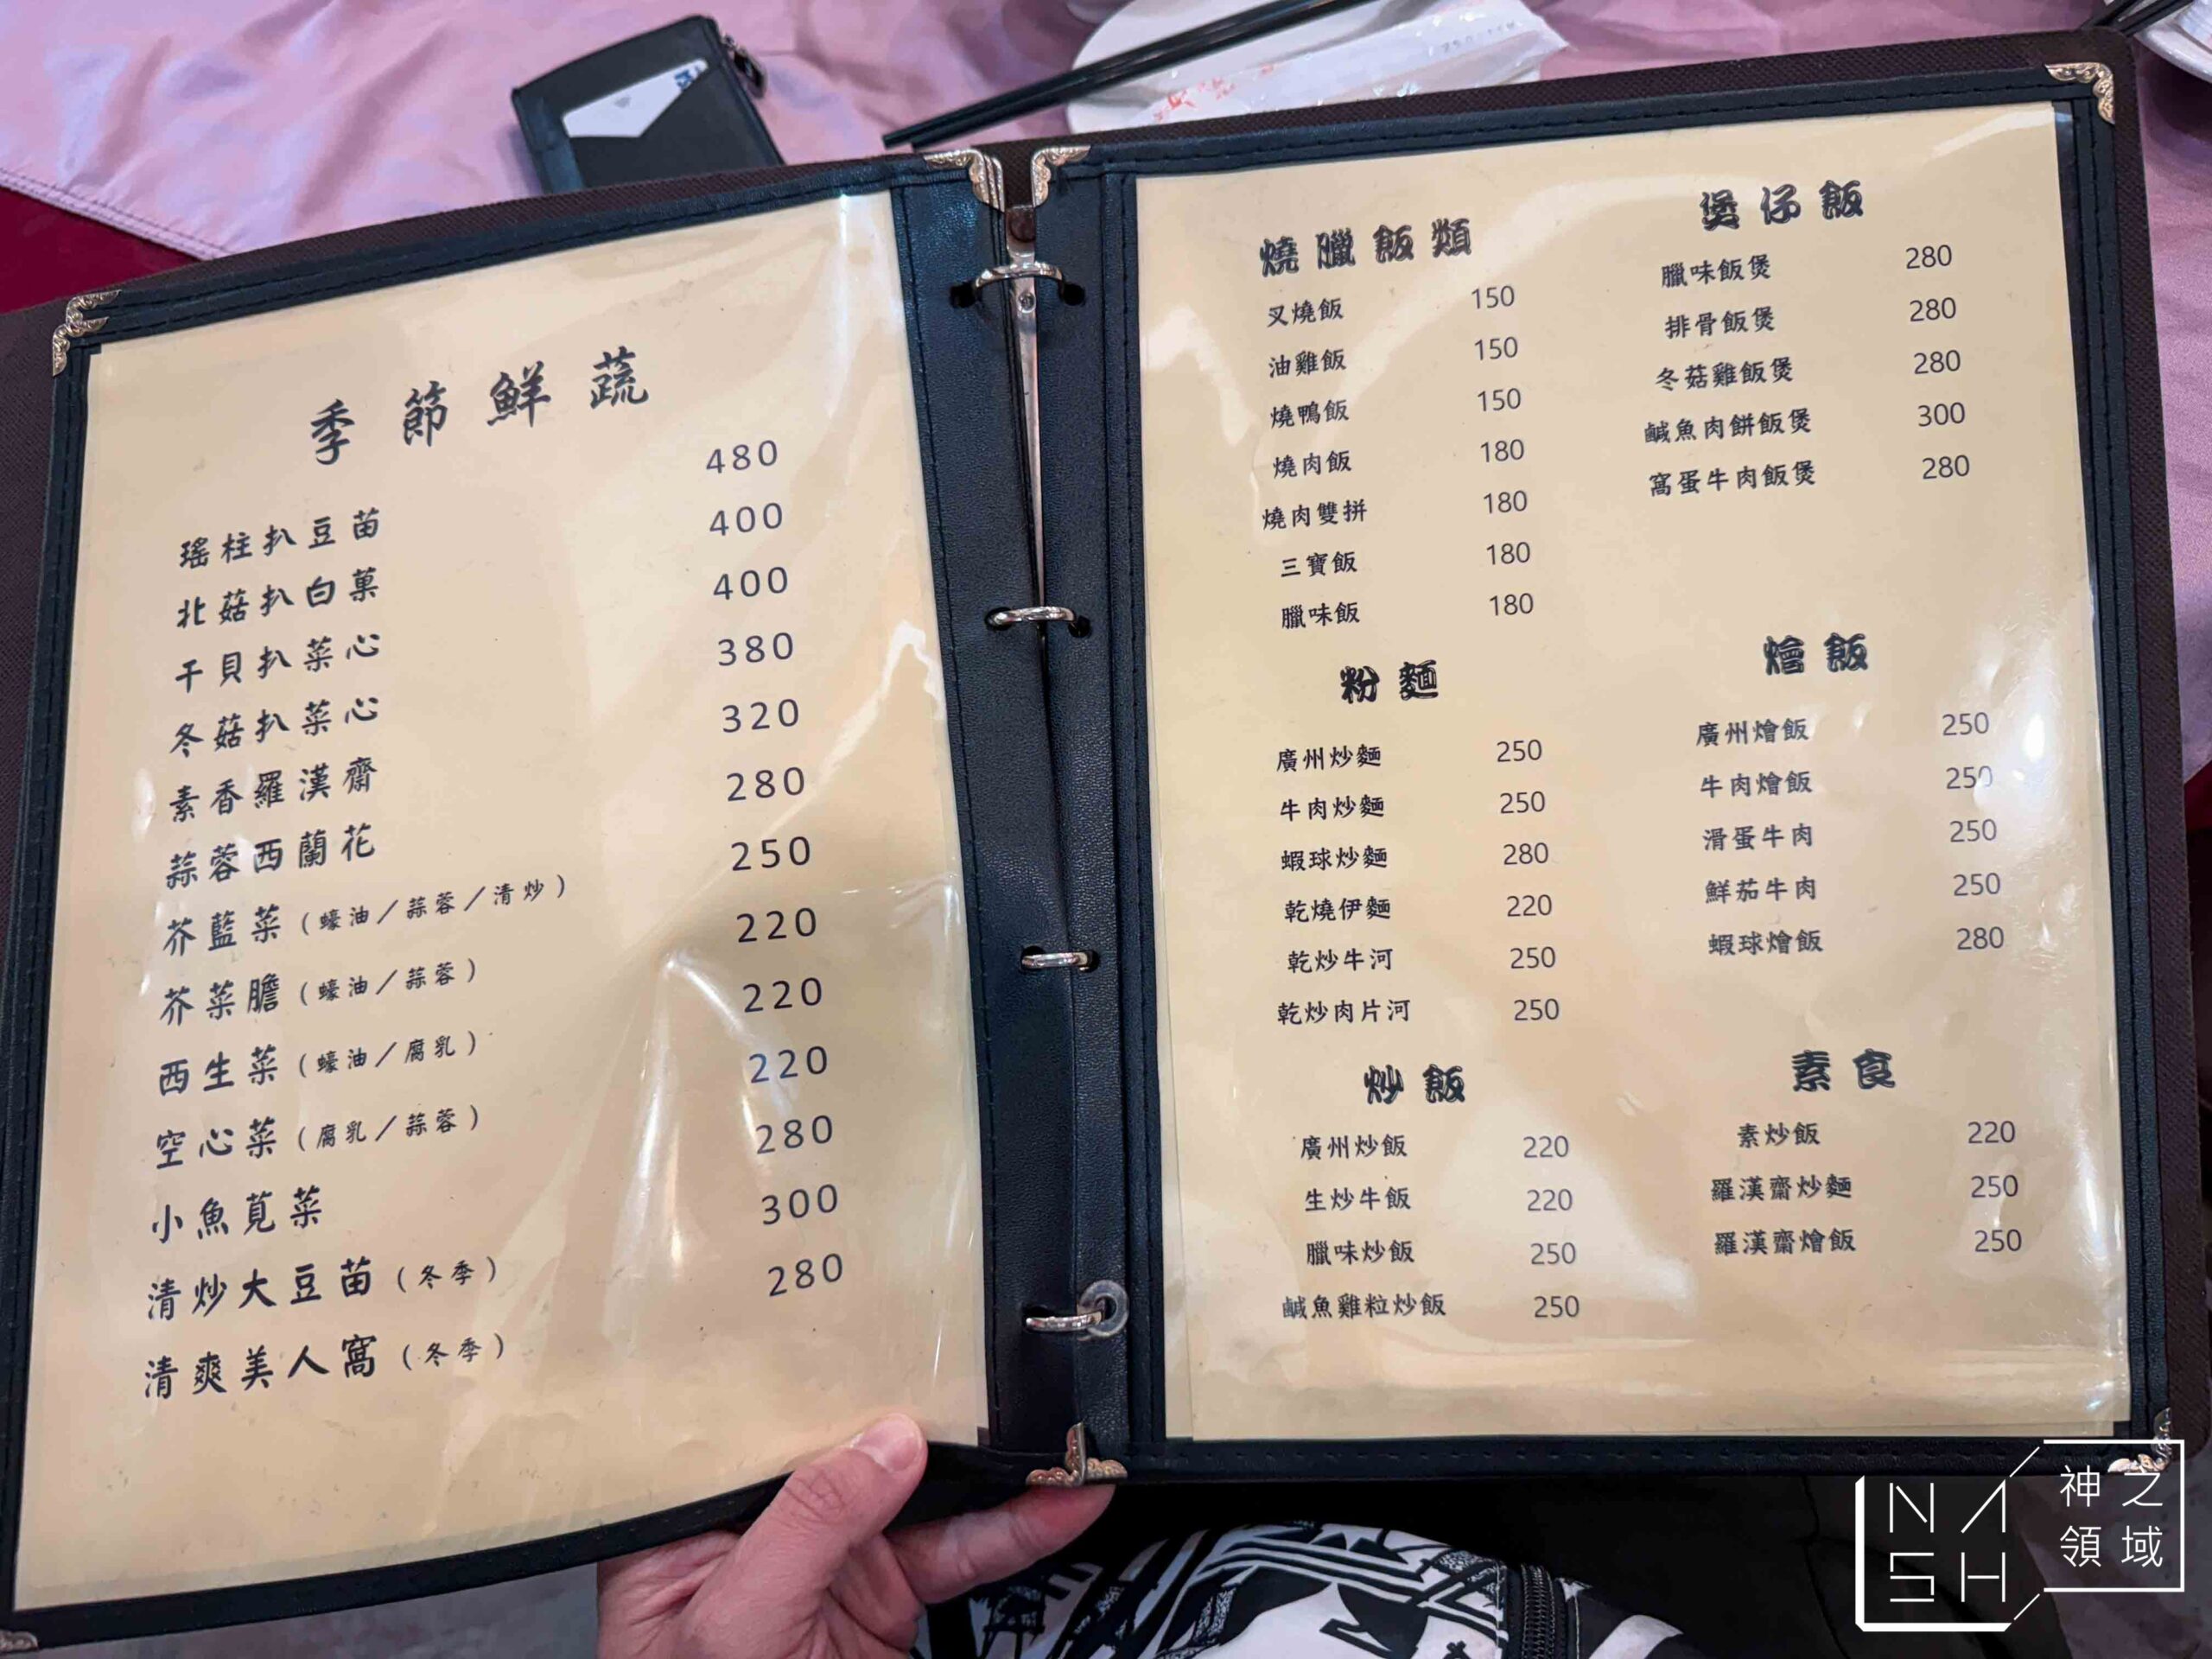 季節鮮蔬
瑤柱扒豆苗 480
北菇扒白菓 400
干貝扒菜心 400
冬菇扒菜心 380
素香羅漢齋 320
蒜蓉西蘭花 280
芥藍菜(蠔油/蒜蓉/清炒) 250
芥菜膽(蠔油/蒜蓉) 220
西生菜(蠔油/腐乳) 220
空心菜(腐乳/蒜蓉) 220
小魚莧菜 280
清炒大豆苗(冬季) 300
清爽美人窩(冬季) 280
燒臘飯類
叉燒飯 150
油雞飯 150
燒鴨飯 150
燒肉飯 180
燒肉雙拼 180
三寶飯 180
臘味飯 180
粉麵
廣州炒麵 250
牛肉炒麵 250
蝦球炒麵 280
乾燒伊麵 220
乾炒牛河 250
乾炒肉片河 250
炒飯
廣州炒飯 220
生炒牛飯 220
臘味炒飯 250
鹹魚雞粒炒飯 250
煲仔飯
臘味飯煲 280
排骨飯煲 280
冬菇雞飯煲 280
鹹魚肉餅飯煲 300
窩蛋牛肉飯煲 280
燴飯
廣州燴飯 250
牛肉燴飯 250
滑蛋牛肉 250
鮮茄牛肉 250
蝦球燴飯 280
素食
素炒飯 220
羅漢齋炒麵 250
羅漢齋燴飯 250
NASH
神之領域